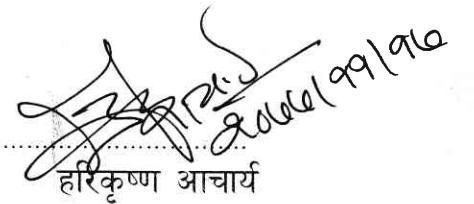 २०७७/११/१७
हरिकृष्ण आचार्य